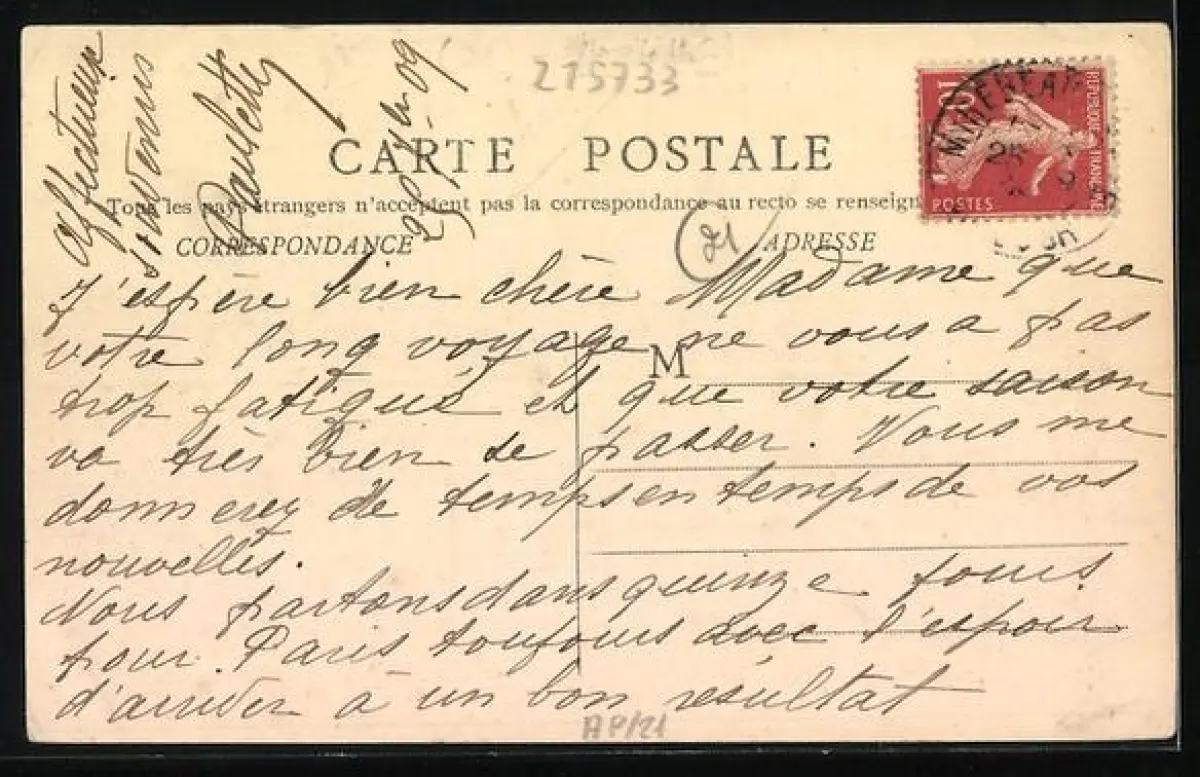 215733
CARTE POSTALE
Tous les pays étrangers n'acceptent pas la correspondance au recto se renseign
CORRESPONDANCE
ADRESSE
21
10
REPUBLIQUE FRANÇAISE
POSTES
MIREBEAU
25
M
J'espère bien chère Madame que
votre long voyage ne vous a pas
trop fatigué et que votre saison
va très bien se passer. Vous me
donnerez de temps en temps de vos
nouvelles.
Nous partons dans quinze jours
pour Paris toujours avec l'espoir
d'arriver à un bon résultat
Affectueux
souvenirs
Paulette
25 09
AP/21